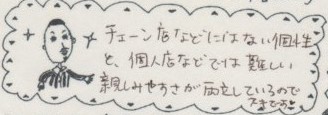 チェーン店などにはない個性
と、個人店などでは難しい
親しみやすさが両立しているので
すきです